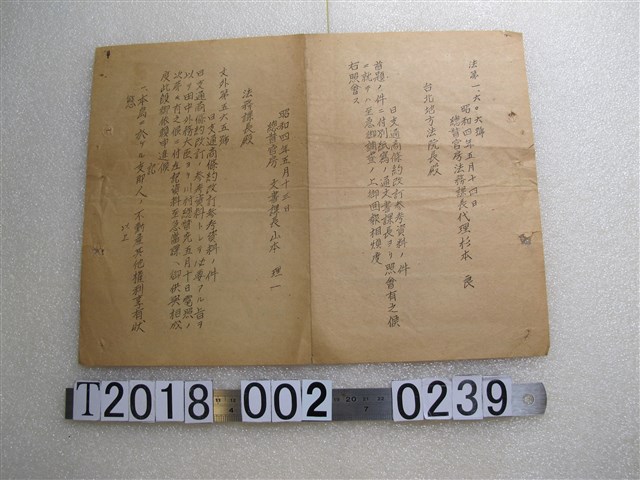 法第一、六〇六號
昭和四年五月十四日
總督官房法務課長代理杉本 良
台北地方法院長殿
日支通商條約改訂参考資料ノ件
首題ノ件ニ付別紙寫ノ通文書課長ヨリ照會有之候
ニ就テハ至急御調査ノ上御回報相煩度
右照會ス
昭和四年五月十三日
總督官房 文書課長山本 理一
法務課長殿
文外第五六五號
日支通商條約改訂参考資料ノ件
日支通商條約改訂ノ参考資料トシテ必要アル旨ヲ
以テ田中外務大臣ヨリ川村總督宛五月十日電照ノ
次第モ有之候ニ付左記資料至急蒐集、御供與相成
度此段御依頼申進候
記
一、本島ニ於ケル支那人ノ不動産其他權利享有狀
態
以上
T2018 002 0239